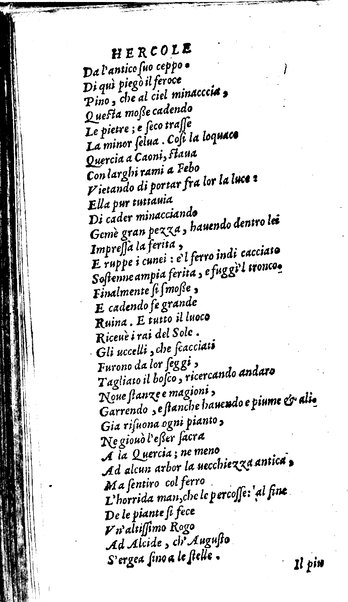 HERCOLE
Da l'antico suo ceppo.
Di quì piegò il feroce
Pino, che al ciel minacccia,
Questa mosse cadendo
Le pietre; e seco trasse
La minor selua. Così la loquace
Quercia a Caoni, staua
Con larghi rami a Febo
Vietando di portar fra lor la luce:
Ella pur tuttauia
Di cader minacciando
Gemè gran pezza, hauendo dentro lei
Impressa la ferita,
E ruppe i cunei: e'l ferro indi cacciato
Sostenne ampia ferita, e fuggì'l tronco.
Finalmente si smosse,
E cadendo fe grande
Ruina. E tutto il luoco
Riceuè i rai del Sole.
Gli uccelli, che scacciati
Furono da lor seggi,
Tagliato il bosco, ricercando andaro
Noue stanze e magioni,
Garrendo, e stanche hauendo e piume & ali.
Gia risuona ogni pianto,
Ne giouò l'esser sacra
A la Quercia; ne meno
Ad alcun arbor la uecchiezza antica,
Ma sentiro col ferro
L'horrida man, che le percosse: al fine
De le piante si fece
Vn'altissimo Rogo
Ad Alcide, ch'Augusto
S'ergea sino a le stelle.
Il piu